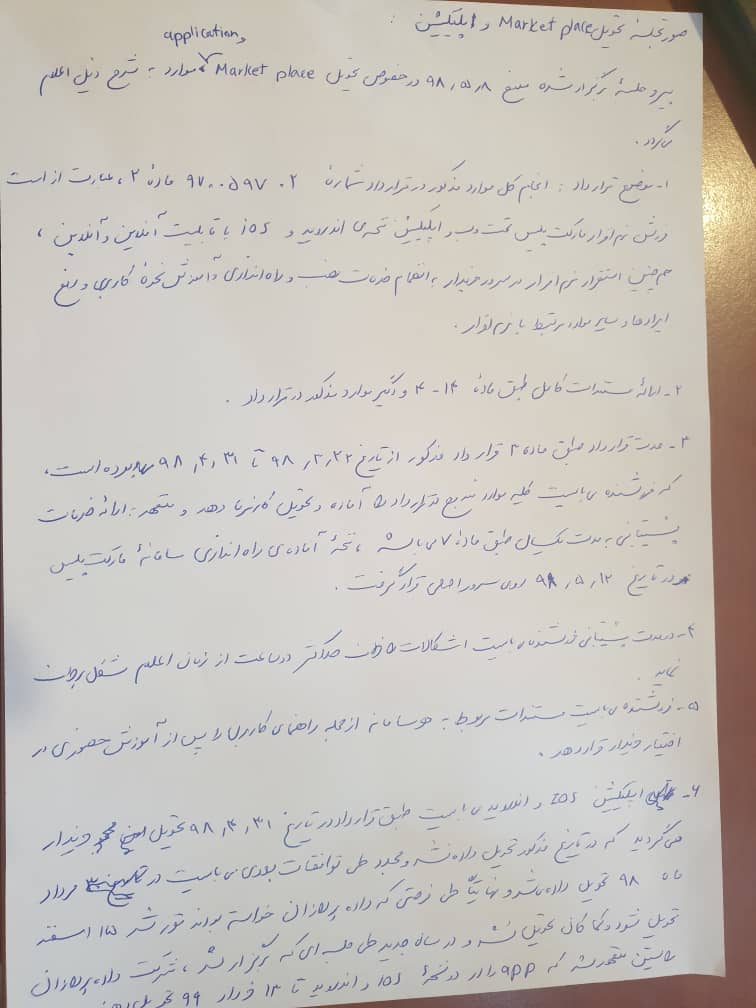 صورتجلسه تحویل Market place و اپلیکیشن :
application و
پیرو جلسه برگزار شده مورخ ۹۸٫۵٫۸ در خصوص تحویل Market place موارد به شرح ذیل اعلام
می‌گردد .
۱- موضوع قرارداد : انجام کل موارد مذکور در قرارداد شماره ۹۷۰۰۵۹۷۰۲ مادهٔ ۲ ، عبارت از است
فروش نرم افزار مارکت پلیس تحت وب و اپلیکیشن نسخه‌ی اندروید و ios با قابلیت آنلاین و آفلاین ،
هم چنین استقرار نرم افزار در سرور خریدار به انضمام خدمات نصب و راه اندازی و آموزش نحوهٔ کاربری و رفع
ایرادها و سایر موارد مرتبط با نرم افزار .
۲- ارائه مستندات کامل طبق مادهٔ ۱۴-۴ و دیگر موارد مذکور در قرارداد .
۳- مدت قرارداد طبق ماده ۳ قرار داد مذکور از تاریخ ۹۸٫۲٫۲۲ تا ۹۸٫۴٫۳۱ بوده است،
که فروشنده می بایست کلیه موارد موضوع قرارداد را آماده و تحویل کارفرما دهد و متعهد به ارائه خدمات
پشتیبانی به مدت یکسال طبق مادهٔ ۷ می باشد ، نسخهٔ آماده‌ی راه اندازی سامانهٔ مارکت پلیس
در تاریخ ۹۸٫۵٫۱۲ روی سرور اصلی قرار گرفت .
۴- در مدت پشتیبانی فروشنده می بایست اشکالات را ظرف حداکثر دو ساعت از زمان اعلام مشکل برطرف
نماید .
۵- فروشنده می بایست مستندات مربوط به هر سامانه از جمله راهنمای کاربری را پس از آموزش حضوری در
اختیار خریدار قرار دهد .
۶- اپلیکیشن IOS و اندروید می بایست طبق قرارداد در تاریخ ۹۸٫۴٫۳۱ تحویل خریدار
می گردید که در تاریخ مذکور تحویل داده نشد و مجدد طی توافقات بعدی می بایست در مرداد
ماه ۹۸ تحویل داده می شد و نهایتاً طی فرصتی که داده پردازان خواسته بودند مقرر شد ۱۵ اسفند
تحویل شود و کماکان تحویل نشد و در سال جدید طی جلسه ای که برگزار شد ، شرکت داده پردازان
متعهد شد که app را در دو نسخهٔ ios و اندروید تا ۱۳ خرداد ۹۹ تحویل دهد